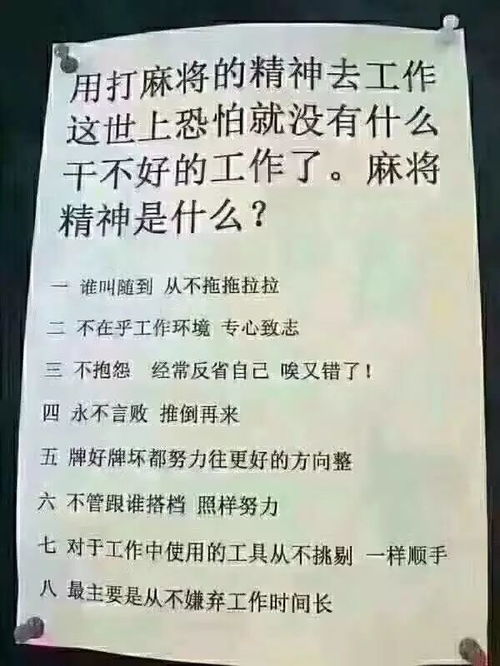 用打麻将的精神去工作
这世上恐怕就没有什么
干不好的工作了。麻将
精神是什么？
一 谁叫随到 从不拖拖拉拉
二 不在乎工作环境 专心致志
三 不抱怨 经常反省自己 唉又错了！
四 永不言败 推倒再来
五 牌好牌坏都努力往更好的方向整
六 不管跟谁搭档 照样努力
七 对于工作中使用的工具从不挑剔 一样顺手
八 最主要是从不嫌弃工作时间长